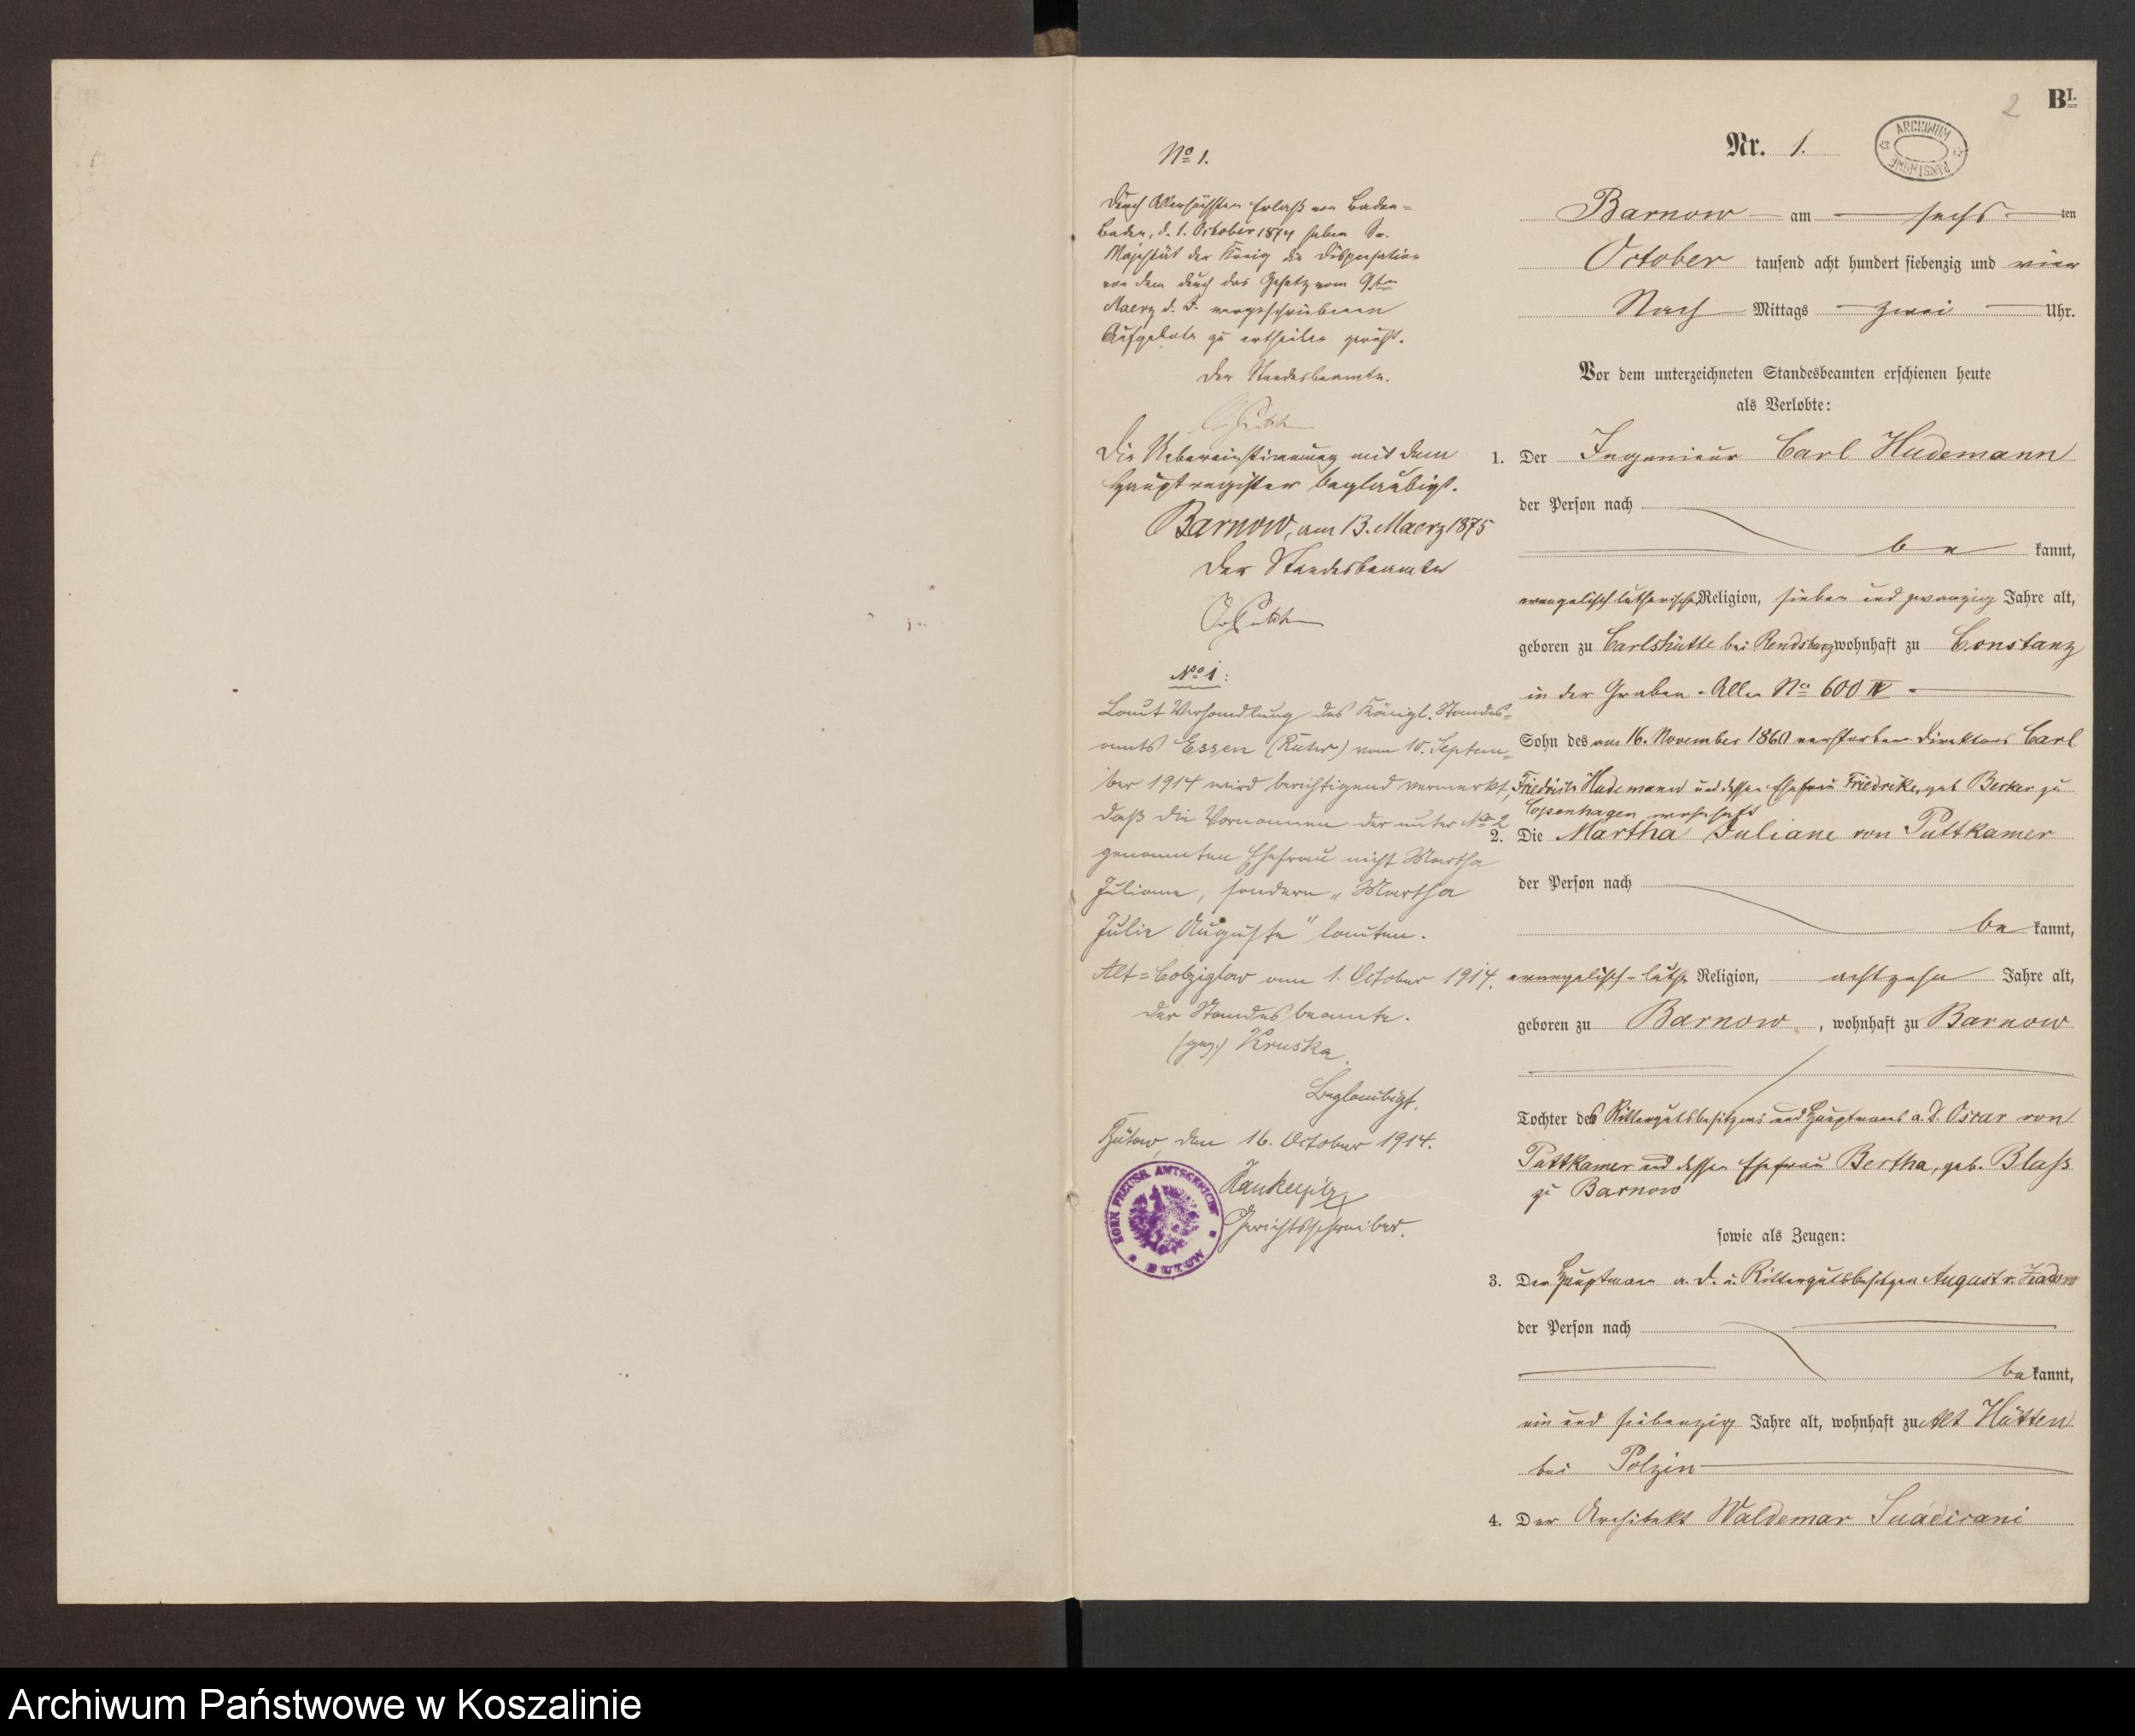 2
B I.
Nr. 1.
ARCHIWUM PAŃSTWOWE
No 1.
Durch Allerhöchsten Erlaß von Baden-
Baden, d. 1. October 1874 haben Se.
Majestät der König die Dispensation
von dem durch das Gesetz vom 9ten
Maerz d. J. vorgeschriebenen
Aufgebote zu ertheilen geruht.
Der Standesbeamte.
Die Uebereinstimmung mit dem
Hauptregister beglaubigt.
Barnow, am 13. Maerz 1875
Der Standesbeamte
No 1:
Laut Verhandlung des Königl. Standes-
amts Essen (Ruhr) vom 10. Septem-
ber 1914 wird berichtigend vermerkt,
daß die Vornamen der unter No 2
genannten Ehefrau nicht Martha
Juliane, sondern „Martha
Julie Auguste" lauten.
Alt-Colziglow am 1. October 1914.
Der Standesbeamte.
(gez.) Kruska.
Beglaubigt.
Bütow, den 16. October 1914.
Gerichtsschreiber.
KOEN. PREUSS. AMTSGERICHT BUTOW
Barnow am sechs ten
October tausend acht hundert siebenzig und vier
Nach Mittags zwei Uhr.
Vor dem unterzeichneten Standesbeamten erschienen heute
als Verlobte:
1. Der Ingenieur Carl Hudemann
der Person nach
be kannt,
evangelisch lutherischer Religion, sieben und zwanzig Jahre alt,
geboren zu Carlshütte bei Rendsburg wohnhaft zu Constanz
in der Graben-Allee No 600 IV
Sohn des am 16. November 1860 verstorben Direktors Carl
Friedrich Hudemann und dessen Ehefrau Friedrike, geb Becker zu
Copenhagen wohnhaft
2. Die Martha Juliane von Puttkamer
der Person nach
be kannt,
evangelisch-luth. Religion, achtzehn Jahre alt,
geboren zu Barnow, wohnhaft zu Barnow
Tochter des Rittergutsbesitzers und Hauptmanns a. D. Oscar von
Puttkamer und dessen Ehefrau Bertha, geb. Blaß
zu Barnow
sowie als Zeugen:
3. Der Hauptmann a. D. u. Rittergutsbesitzer August v. Zadow
der Person nach
be kannt,
ein und siebenzig Jahre alt, wohnhaft zu Alt Hütten
bei Polzin
4. Der Architekt Waldemar Suadicani
Archiwum Państwowe w Koszalinie